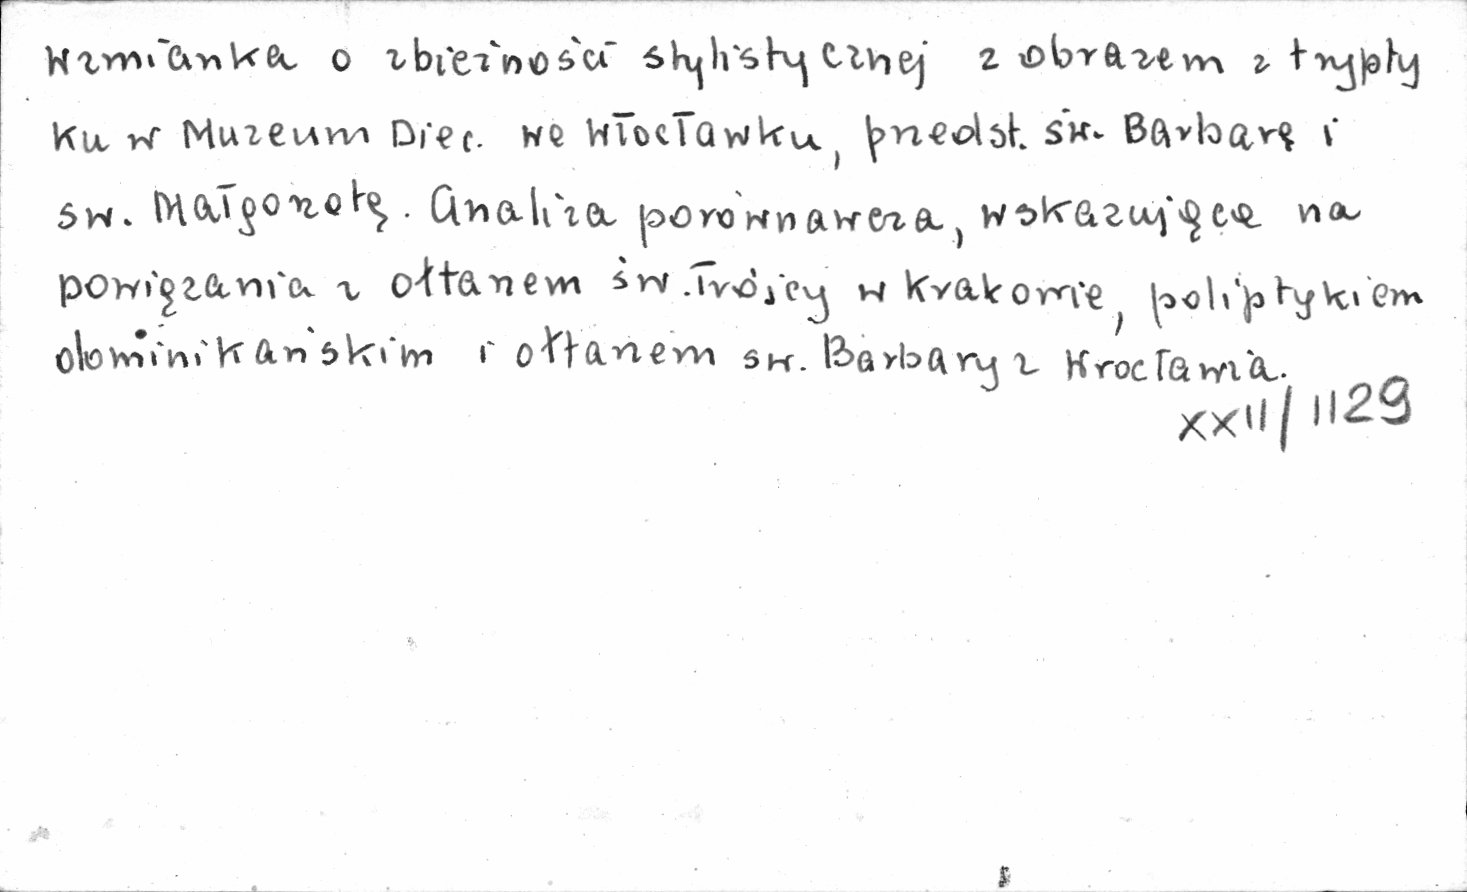 Wzmianka o zbieżności stylistycznej z obrazem z trypty
ku w Muzeum Diec. we Włocławku, przedst. św. Barbarę i
św. Małgorzatę. Analiza porównawcza, wskazująca na
powiązania z ołtarzem św. Trójcy w Krakowie, poliptykiem
dominikańskim i ołtarzem św. Barbary z Wrocławia.
XXII/1129